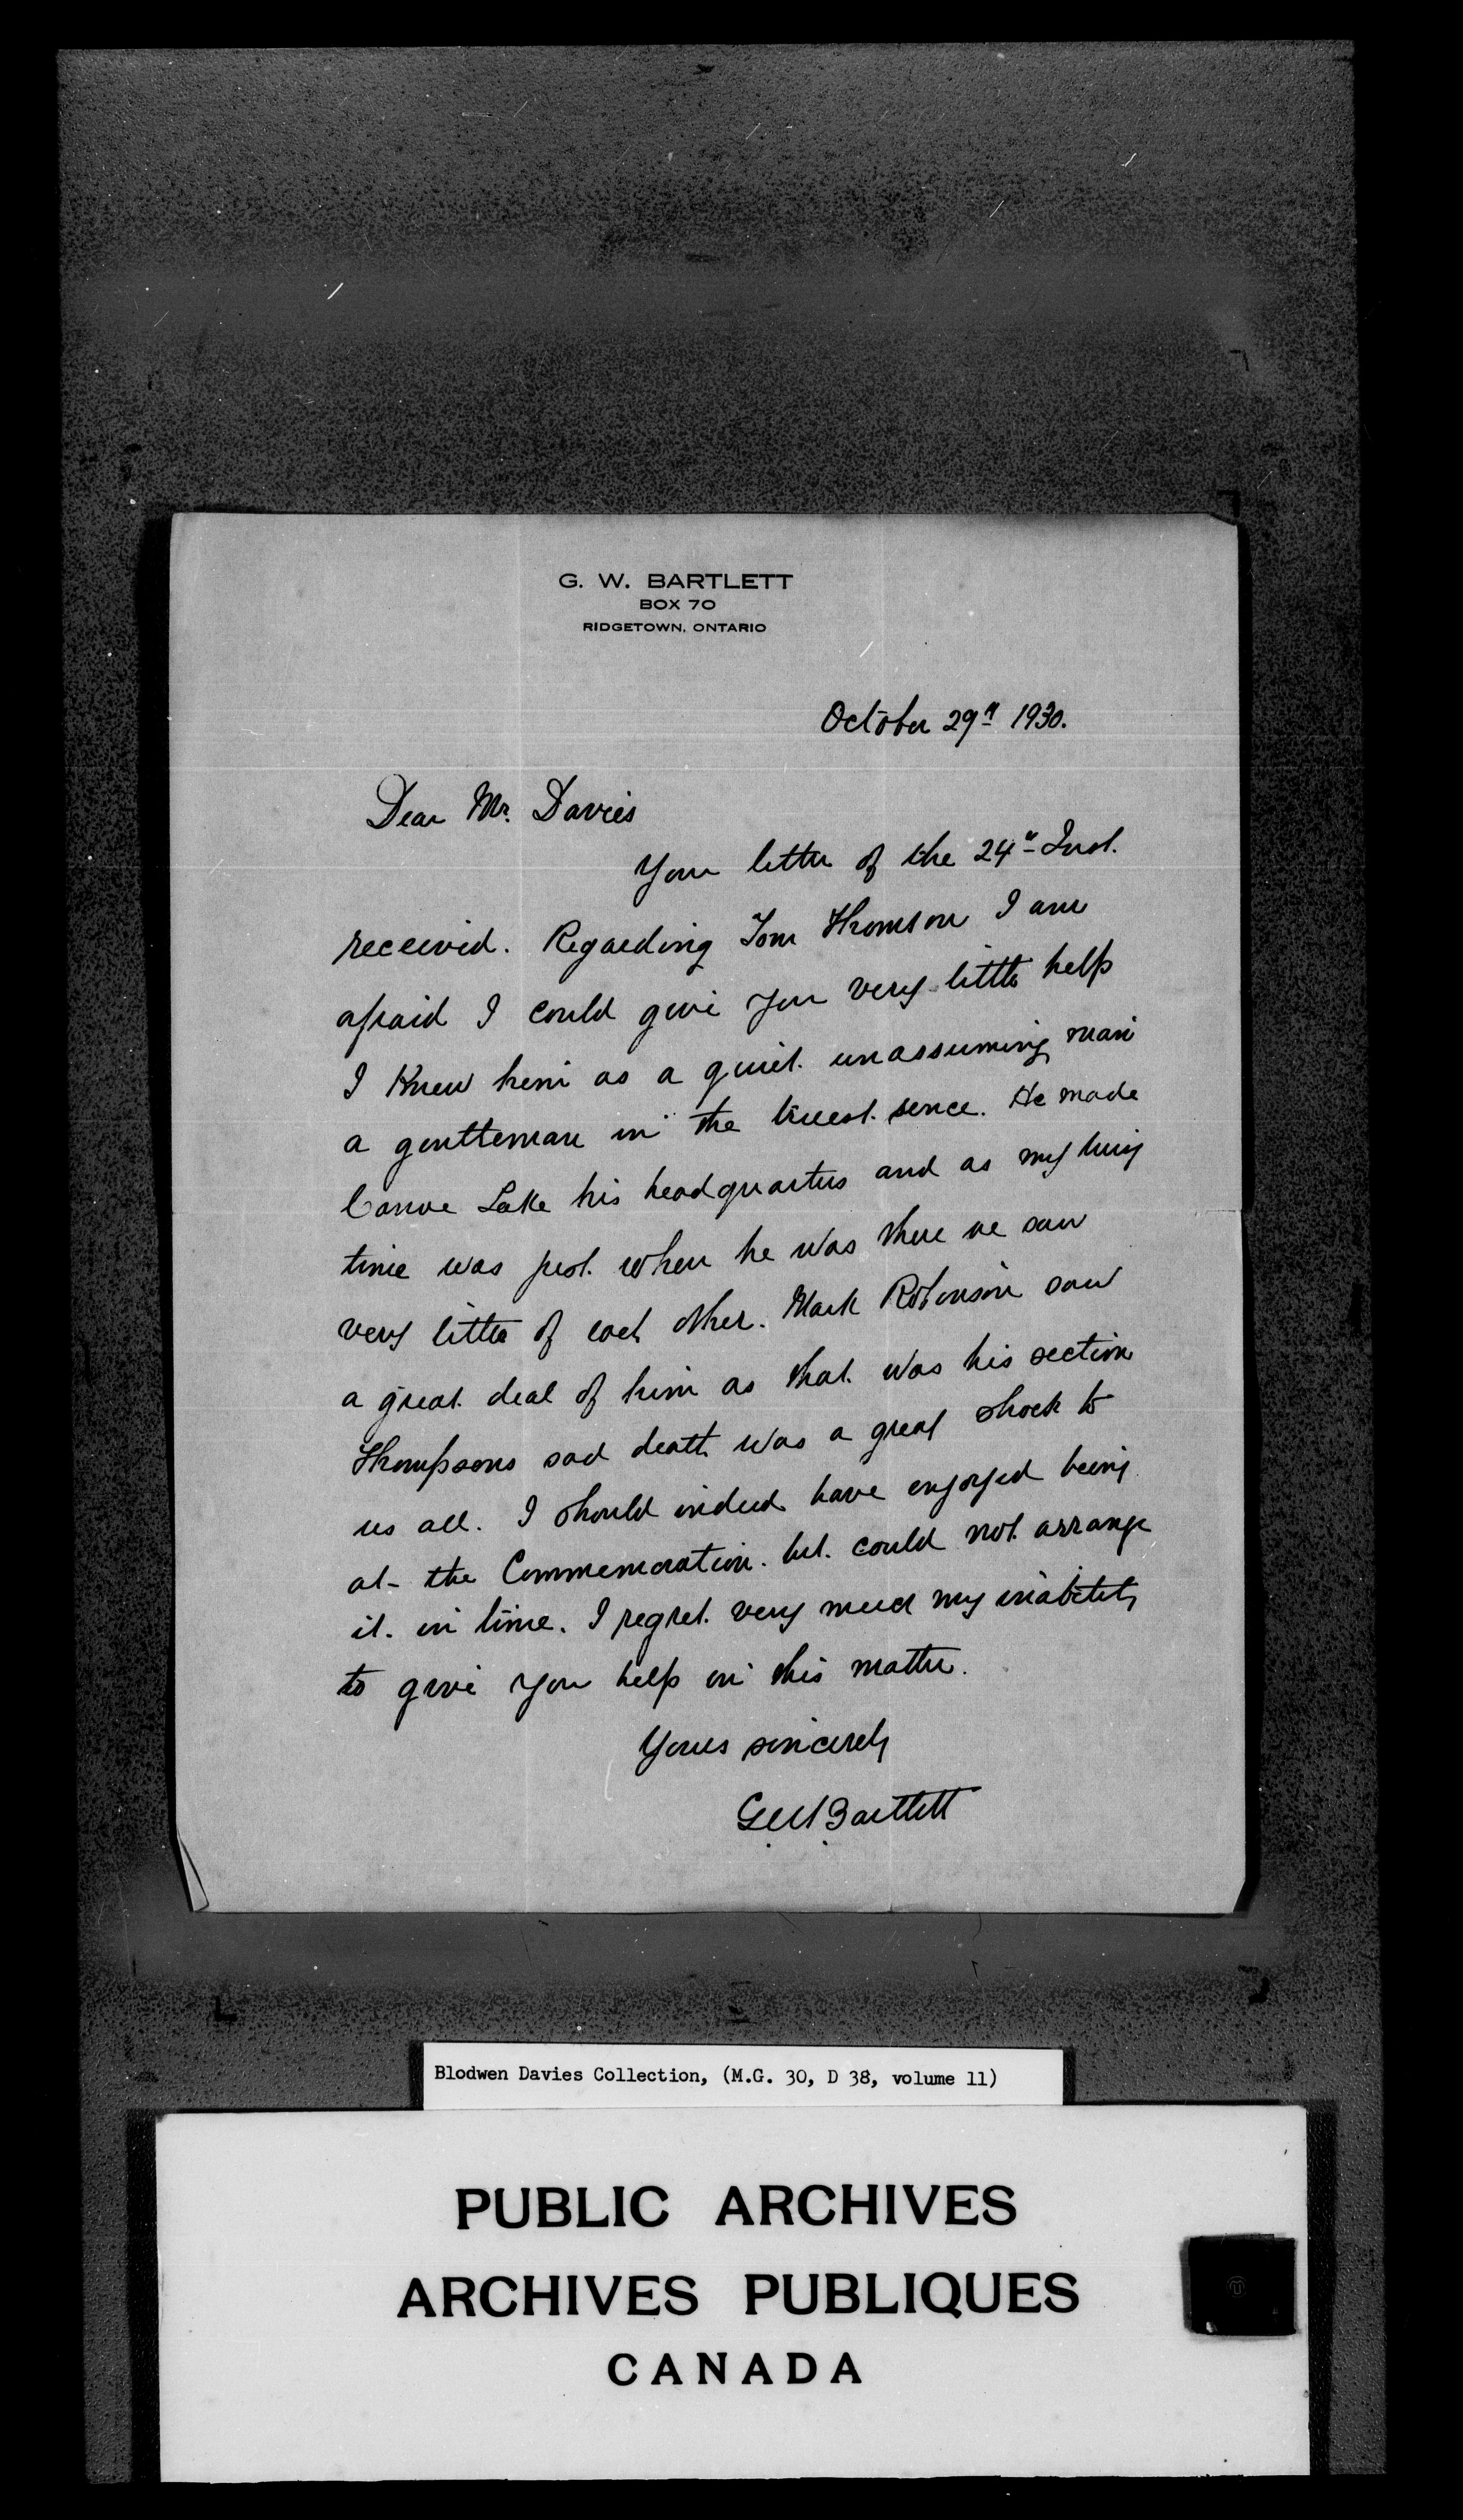 G. W. BARTLETT
BOX 70
RIDGETOWN, ONTARIO
October 29th 1930.
Dear Mr. Davies
Your letter of the 24th Inst.
received. Regarding Tom Thomson I am
afraid I could give you very little help
I knew him as a quiet. unassuming man
a gentleman in the truest. sence. He made
Canoe Lake his headquarters and as my busy
time was just. when he was there we saw
very little of each other. Mark Robinson saw
a great. deal of him as that. was his section
Thompsons sad death was a great shock to
us all. I should indeed have enjoyed being
at the Commemoration. but. could not. arrange
it. in time. I regret. very much my inability
to give you help in this matter.
Yours sincerely
G.W. Bartlett
Blodwen Davies Collection, (M.G. 30, D 38, volume 11)
PUBLIC ARCHIVES
ARCHIVES PUBLIQUES
CANADA